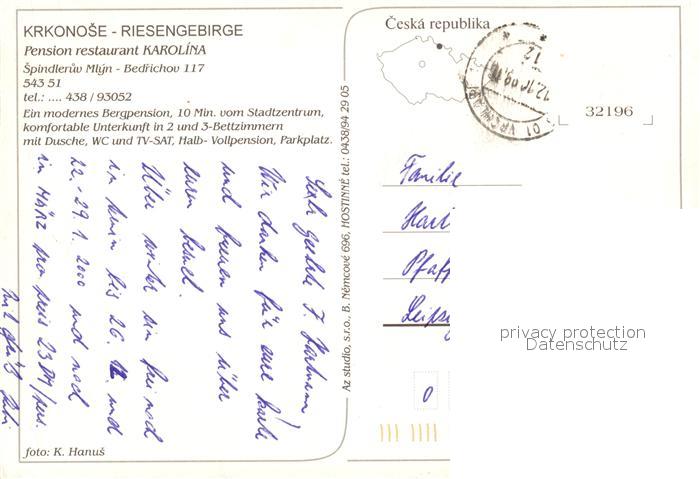 KRKONOŠE - RIESENGEBIRGE
Pension restaurant KAROLÍNA
Špindlerův Mlýn - Bedřichov 117
543 51
tel.: .... 438 / 93052
Ein modernes Bergpension, 10 Min. vom Stadtzentrum,
komfortable Unterkunft in 2 und 3-Bettzimmern
mit Dusche, WC und TV-SAT, Halb- Vollpension, Parkplatz.
Sehr geehrte F.
Wir danken für eure Karte
und freuen uns über
euren besuch.
Über winter bin frei noch
in termin bis 26. 12. und
22.-29.1.2000 und noch
in MÄRZ pro preis 23 DM/pers.
Mit
foto: K. Hanuš
Az studio, s.r.o., B. Němcové 696, HOSTINNÉ tel.: 0438/94 29 05
Česká republika
32196
Familie
Hart
Pfaff
Leipzig
0
privacy protection
Datenschutz